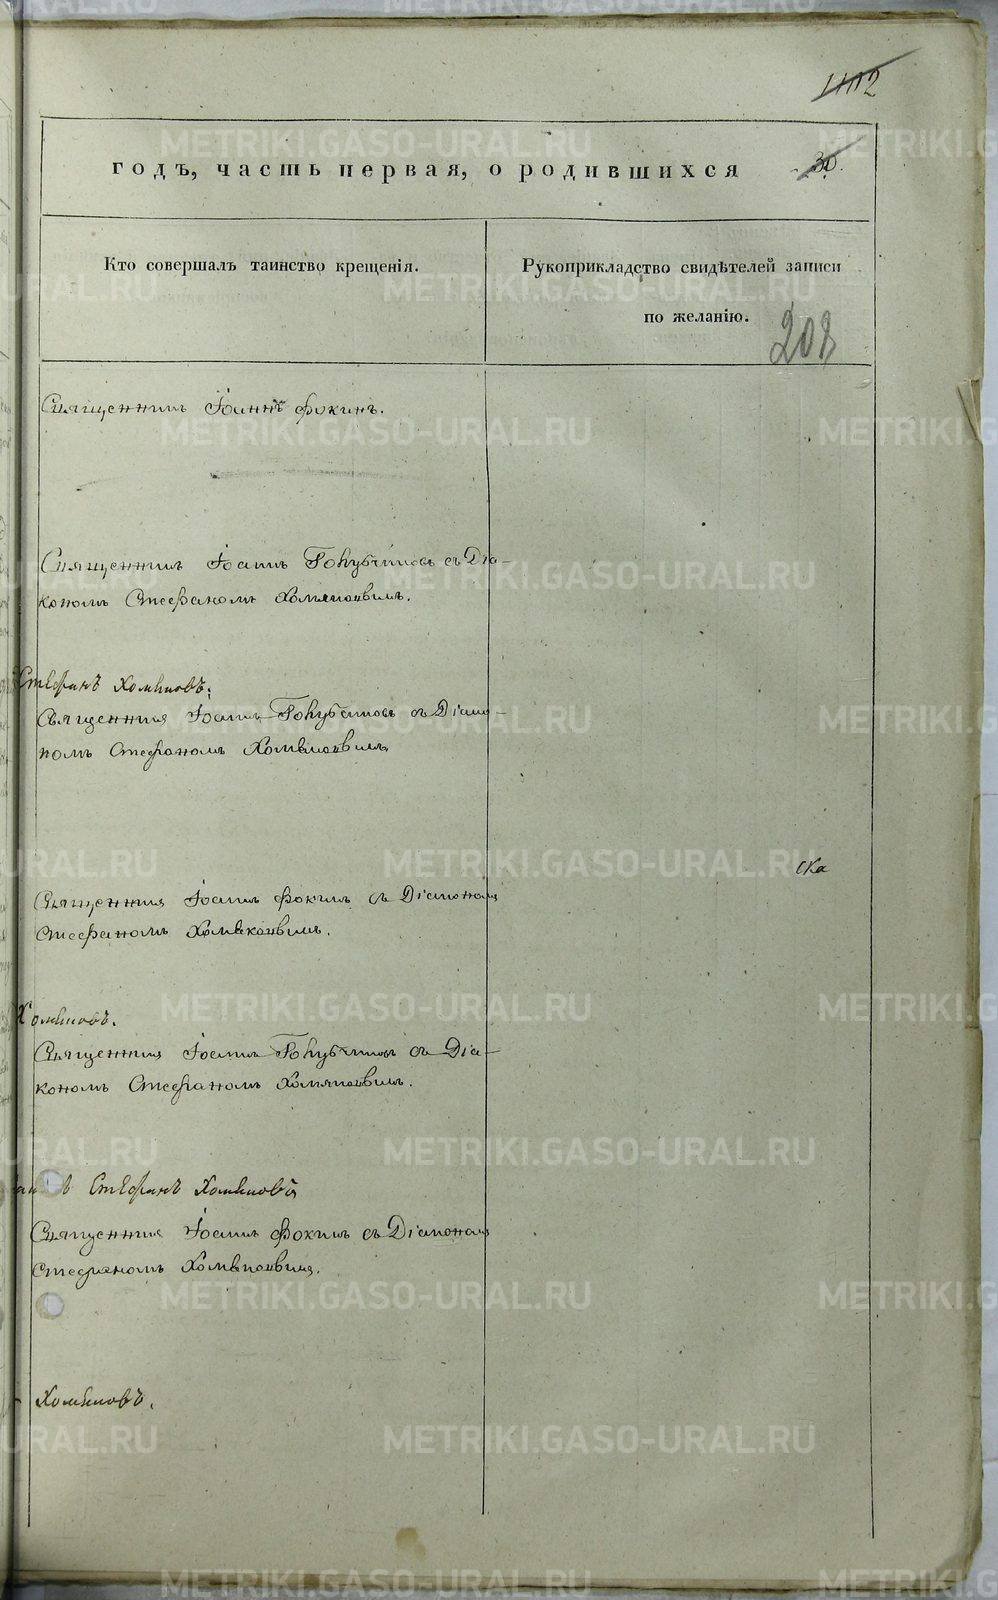 1102
годъ, часть первая, о родившихся
30.
Кто совершалъ таинство крещенія.
Рукоприкладство свидѣтелей записи
по желанію.
208
Священникъ Іоаннъ Фокинъ.
Священникъ Іоаннъ Голубчиковъ съ Діа-
кономъ Стефаномъ Хомяковымъ.
Стефанъ Хомяковъ.
Священникъ Іоаннъ Голубчиковъ съ Діако-
номъ Стефаномъ Хомяковымъ
ска
Священникъ Іоаннъ Фокинъ съ Діакономъ
Стефаномъ Хомяковымъ.
Хомяковъ.
Священникъ Іоаннъ Голубчиковъ съ Діа-
кономъ Стефаномъ Хомяковымъ.
Стефанъ Хомяковъ
Священникъ Іоаннъ Фокинъ съ Діакономъ
Стефаномъ Хомяковымъ.
Хомяковъ.
METRIKI.GASO-URAL.RU